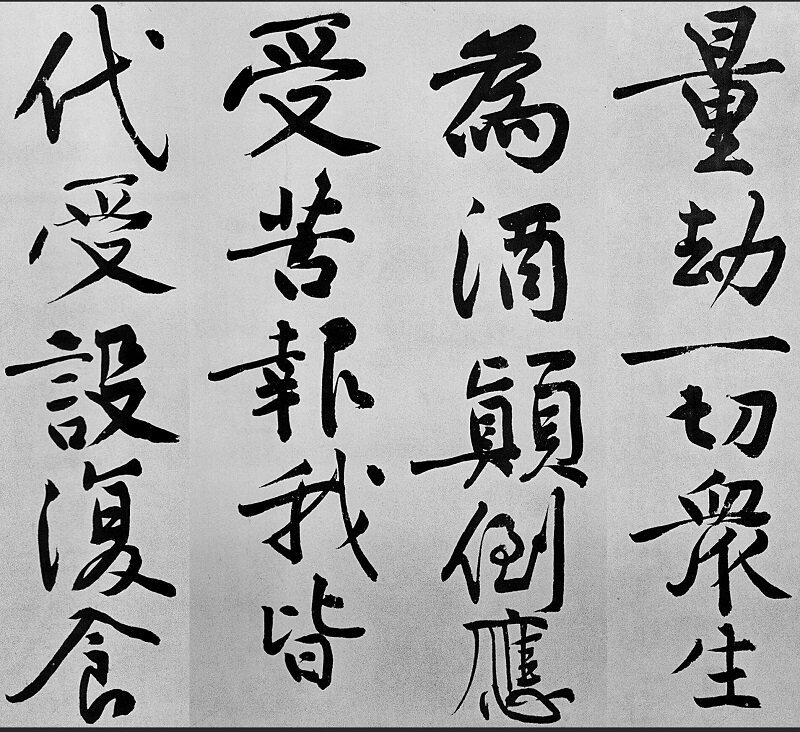 量劫一切衆生
為酒顛倒應
受苦報我皆
代受設復食